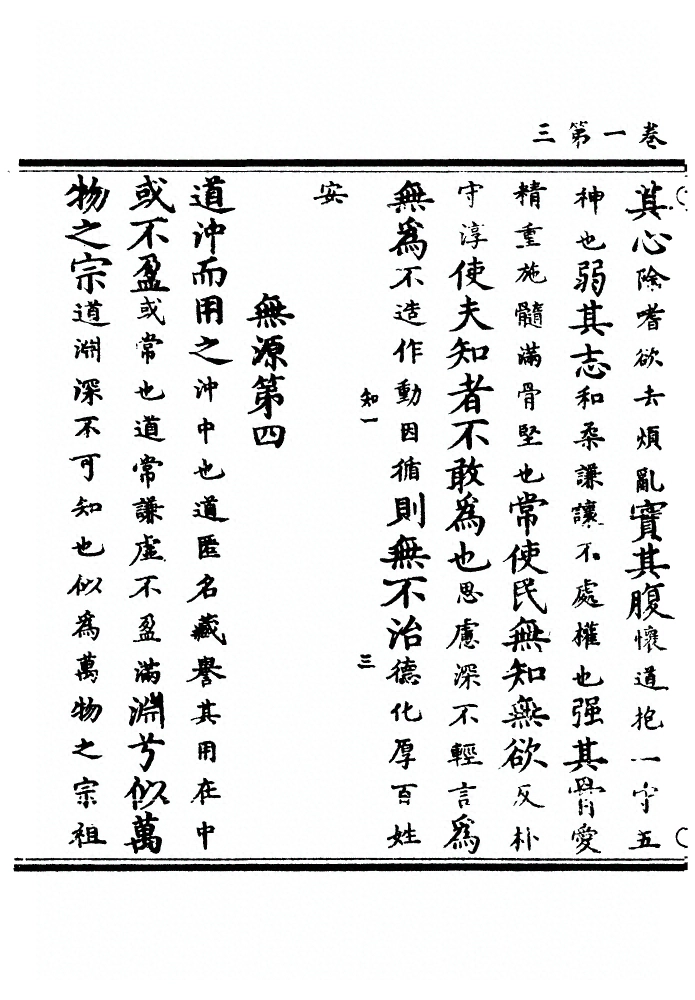 卷一第三
其心除嗜欲去煩亂實其腹懷道抱一守五
神也弱其志和柔謙讓不處權也强其骨愛
精重施髓滿骨堅也常使民無知無欲反朴
守淳使夫知者不敢爲也思慮深不輕言爲
知一 三
無爲不造作動因循則無不治德化厚百姓
安
無源第四
道沖而用之沖中也道匿名藏譽其用在中
或不盈或常也道常謙虛不盈滿淵兮似萬
物之宗道淵深不可知也似爲萬物之宗祖